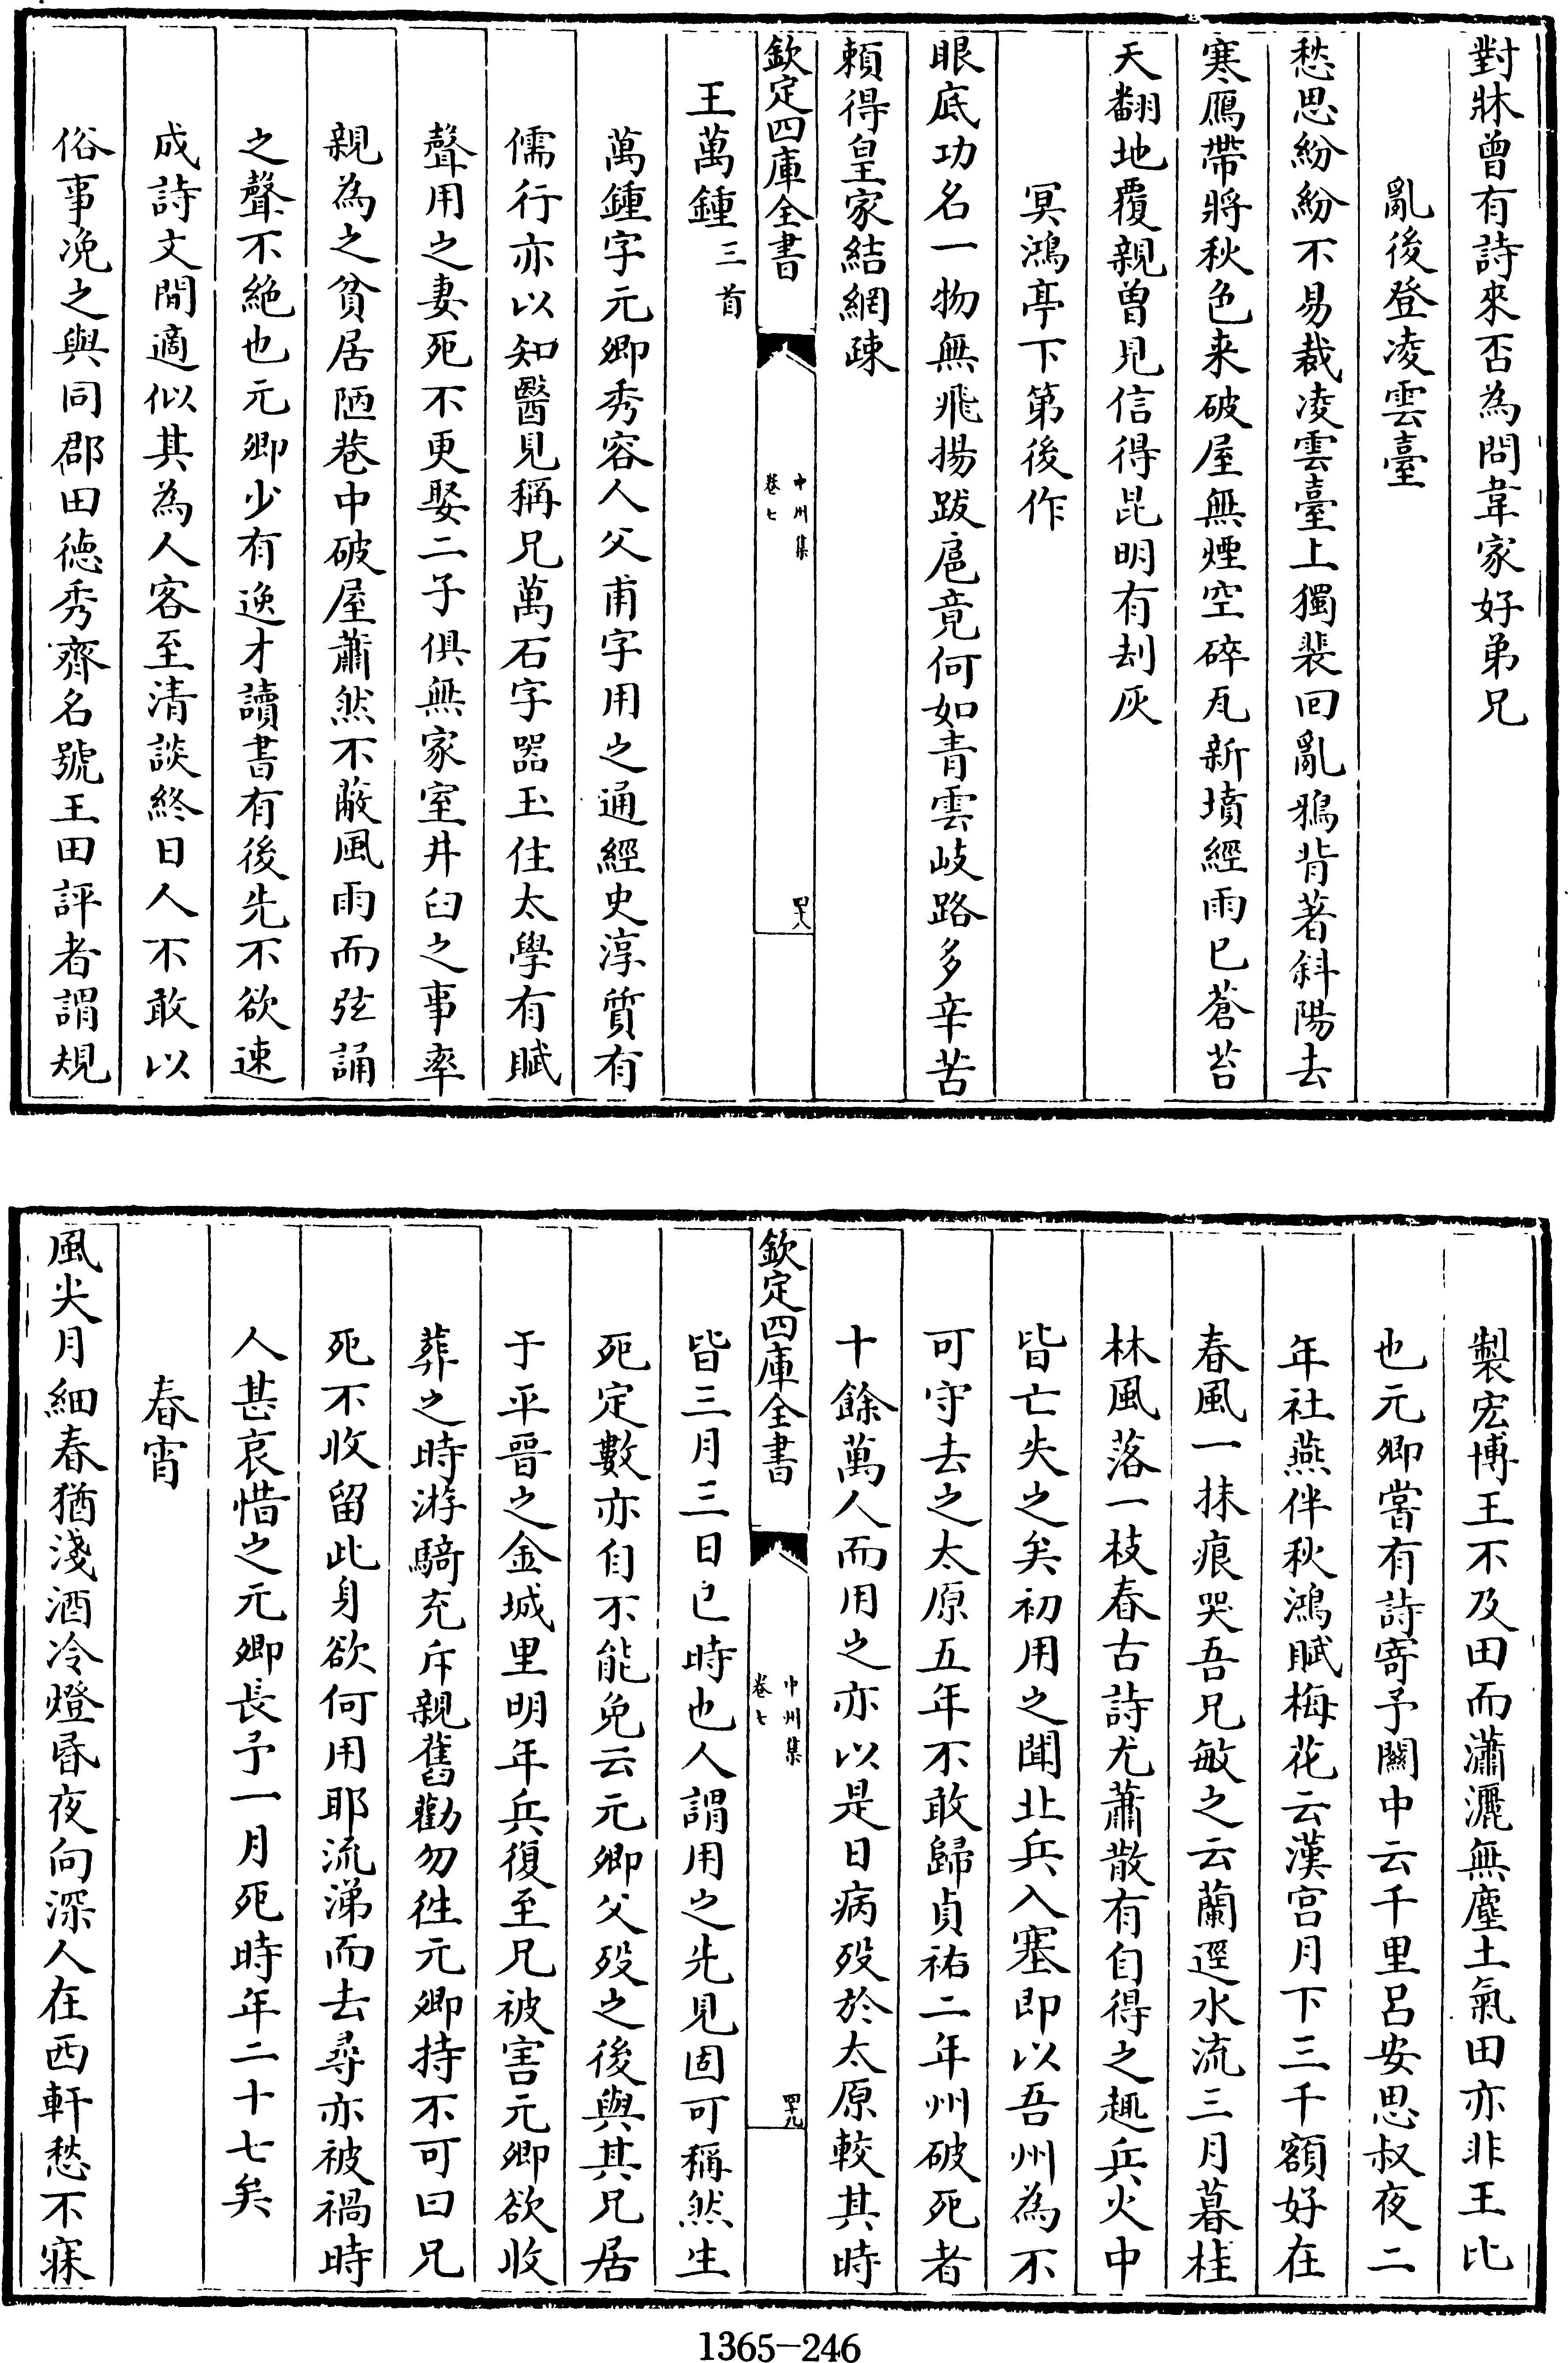 對牀曾有詩來否為問韋家好弟兄
亂後登凌雲臺
愁思紛紛不易裁凌雲臺上獨裴回亂鴉背著斜陽去
寒鴈帶將秋色来破屋無煙空碎瓦新墳經雨已蒼苔
天翻地覆親曽見信得昆明有刦灰
冥鴻亭下第後作
眼底功名一物無飛揚跋扈竟何如青雲岐路多辛苦
賴得皇家結網疎
欽定四庫全書
中州集
卷七
四十八
王萬鍾三首
萬鍾字元卿秀容人父甫字用之通經史淳質有
儒行亦以知醫見稱兄萬石字器玉住太學有賦
聲用之妻死不更娶二子俱無家室井臼之事率
親為之貧居陋巷中破屋蕭然不蔽風雨而弦誦
之聲不絶也元卿少有逸才讀書有後先不欲速
成詩文閒適似其為人客至清談終日人不敢以
俗事凂之與同郡田德秀齊名號王田評者謂規
製宏博王不及田而瀟灑無塵土氣田亦非王比
也元卿嘗有詩寄予關中云千里呂安思叔夜二
年社燕伴秋鴻賦梅花云漢宫月下三千額好在
春風一抹痕哭吾兄敏之云蘭逕水流三月暮桂
林風落一枝春古詩尤蕭散有自得之趣兵火中
皆亡失之矣初用之聞北兵入塞即以吾州為不
可守去之太原五年不敢歸貞祐二年州破死者
十餘萬人而用之亦以是日病歿於太原較其時
欽定四庫全書
中州集
卷七
四十九
皆三月三日巳時也人謂用之先見固可稱然生
死定數亦自不能免云元卿父歿之後與其兄居
于平晉之金城里明年兵復至兄被害元卿欲收
葬之時游騎充斥親舊勸勿徃元卿持不可曰兄
死不收留此身欲何用耶流涕而去尋亦被禍時
人甚哀惜之元卿長予一月死時年二十七矣
春宵
風尖月細春猶淺酒冷燈昏夜向深人在西軒愁不寐
1365-246